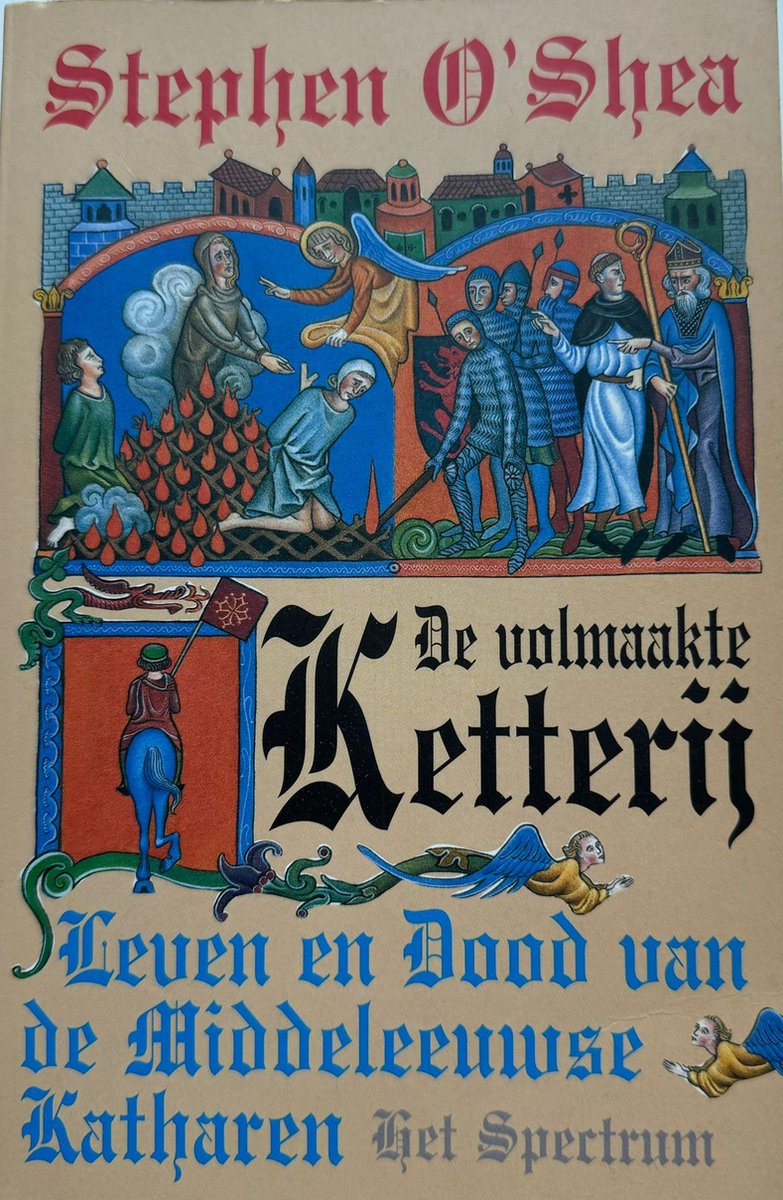 Stephen O'Shea
De volmaakte
Ketterij
Leven en Dood van
de Middeleeuwse
Katharen Het Spectrum